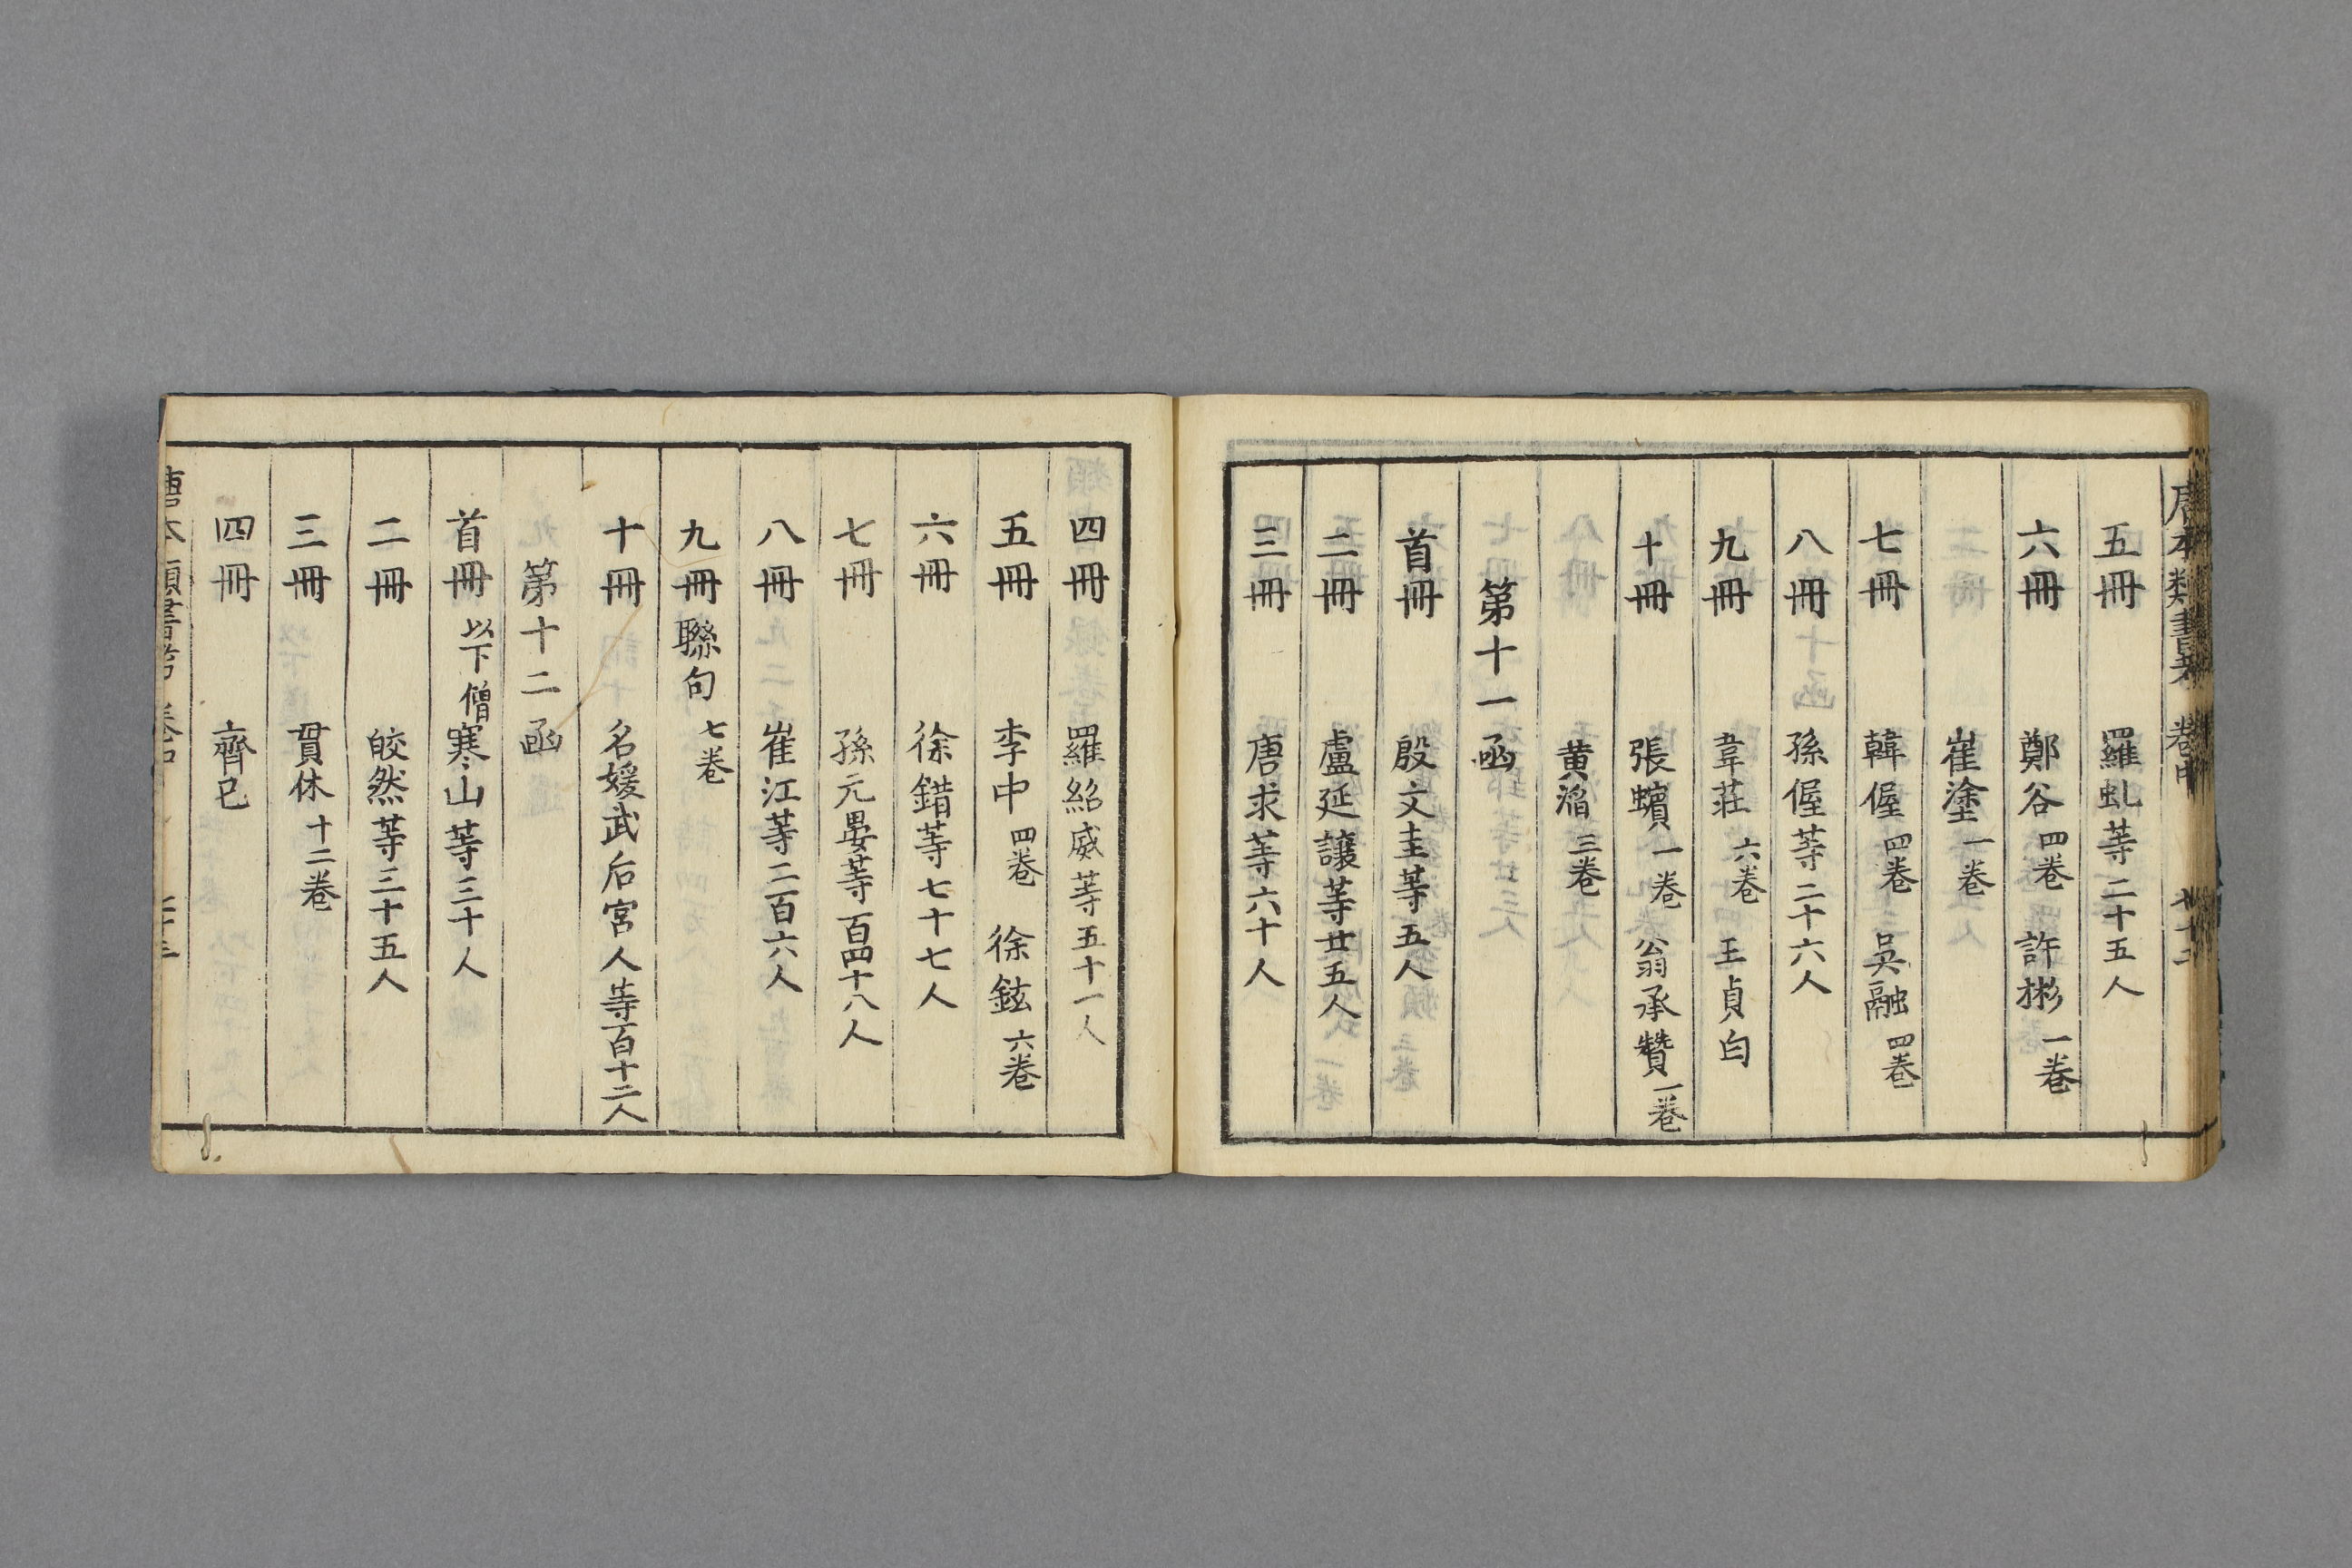 唐本類書考 卷中
五冊 羅虬等二十五人
六冊 鄭谷四卷 許彬一卷
崔塗一卷
七冊 韓偓四卷 吳融四卷
八冊 孫偓等二十六人
九冊 韋莊六卷 王貞白
十冊 張蠙一卷 翁承贊一卷
黄滔三卷
第十一函
首冊 殷文圭等五人
二冊 盧延讓等廿五人
三冊 唐求等六十人
四冊 羅紹威等五十一人
五冊 李中四卷 徐鉉六卷
六冊 徐錯等七十七人
七冊 孫元晏等百四十八人
八冊 崔江等二百六人
九冊聯句七卷
十冊 名媛武后宮人等百十二人
第十二函
首冊以下僧寒山等三十人
二冊 皎然等三十五人
三冊 貫休十二卷
四冊 齊已